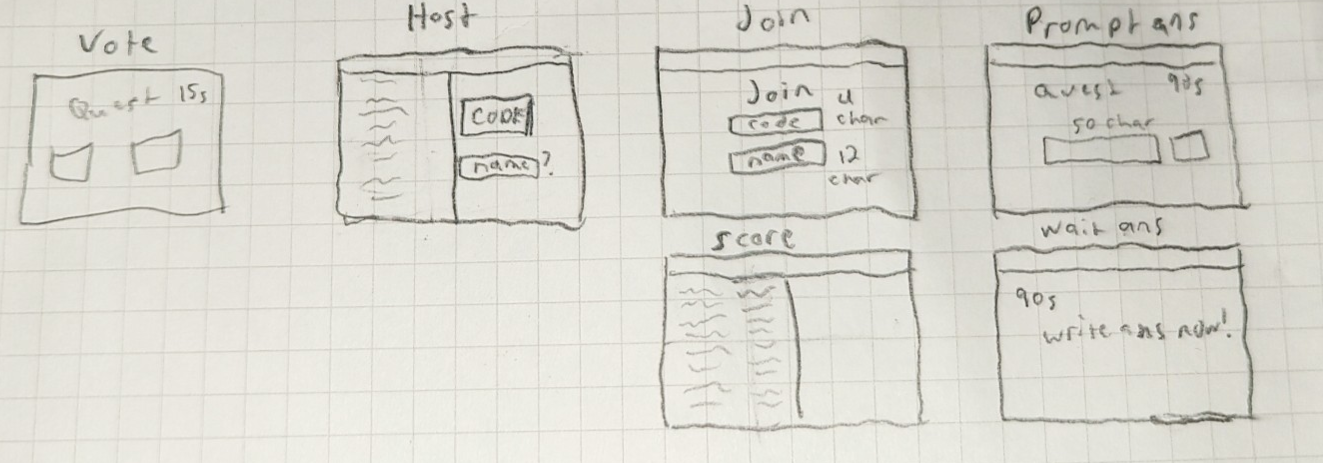 Vote
Quest 15s
Host
CODE
name?
Join
Join
code
4 char
name
12 char
Prompt ans
quest 90s
50 char
score
wait ans
90s
write ans now!